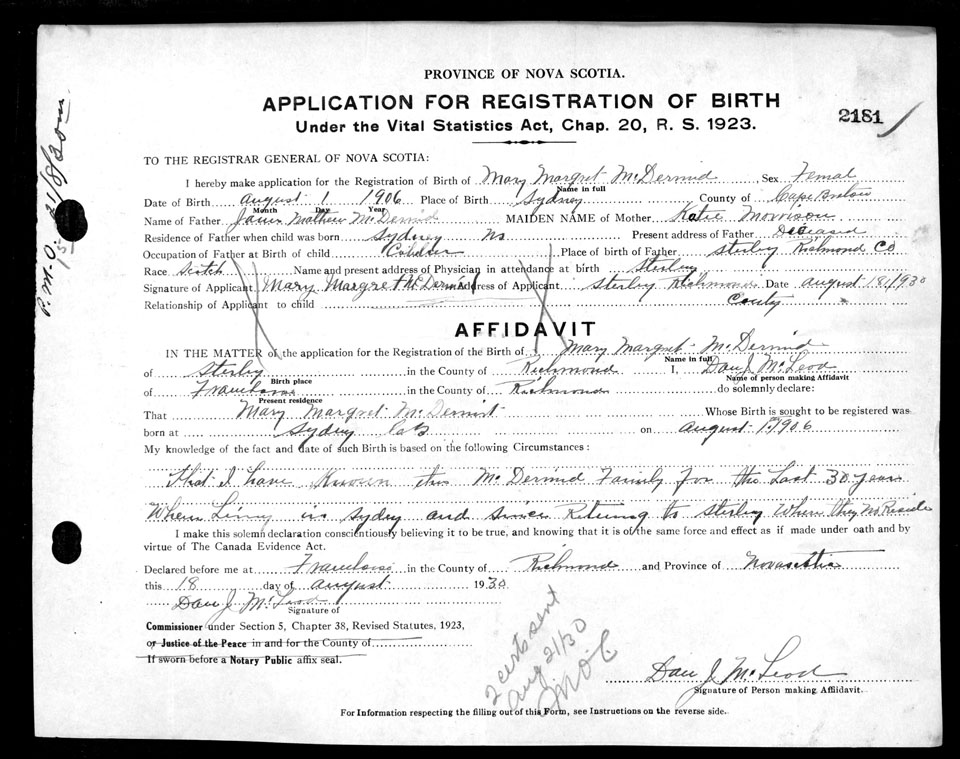 PROVINCE OF NOVA SCOTIA.
APPLICATION FOR REGISTRATION OF BIRTH
2181
Under the Vital Statistics Act, Chap. 20, R. S. 1923.
P.M.O. 21/8/30
TO THE REGISTRAR GENERAL OF NOVA SCOTIA:
I hereby make application for the Registration of Birth of Mary Margret McDermid Sex Femal
Name in full
Date of Birth August 1 1906 Place of Birth Sydney County of Cape Breton
Month Day Year
Name of Father James Mathew McDermid MAIDEN NAME of Mother Katie Morrison
Residence of Father when child was born Sydney NS Present address of Father Deceased
Occupation of Father at Birth of child Place of Birth of Father Sterley Richmond Co
Race Scotch Name and present address of Physician in attendance at birth Sterley
Signature of Applicant Mary Margret McDermid Address of Applicant Sterley Richmond Date August 18/1930
Relationship of Applicant to child County
AFFIDAVIT
IN THE MATTER of the application for the Registration of the Birth of Mary Margret McDermid
Name in full
of Sterley in the County of Richmond I, Dan J McLeod
Birth place Name of person making Affidavit
of Framboise in the County of Richmond do solemnly declare:
Present residence
That Mary Margret McDermit Whose Birth is sought to be registered was
born at Sydney CB on August 1 1906
My knowledge of the fact and date of such Birth is based on the following Circumstances:
That I have Known this McDermid Family for the Last 30 years
When Living in Sydney and since Returning to Sterley Where they No Reside
I make this solemn declaration conscientiously believing it to be true, and knowing that it is of the same force and effect as if made under oath and by
virtue of The Canada Evidence Act.
Declared before me at Framboise in the County of Richmond and Province of Novascotia
this 18 day of August 1930
Dan J McLeod
Signature of
Commissioner under Section 5, Chapter 38, Revised Statutes, 1923,
or Justice of the Peace in and for the County of
If sworn before a Notary Public affix seal.
2 certs sent
Aug 21/30
Dan J McLeod
Signature of Person making Affidavit.
For Information respecting the filling out of this Form, see Instructions on the reverse side.